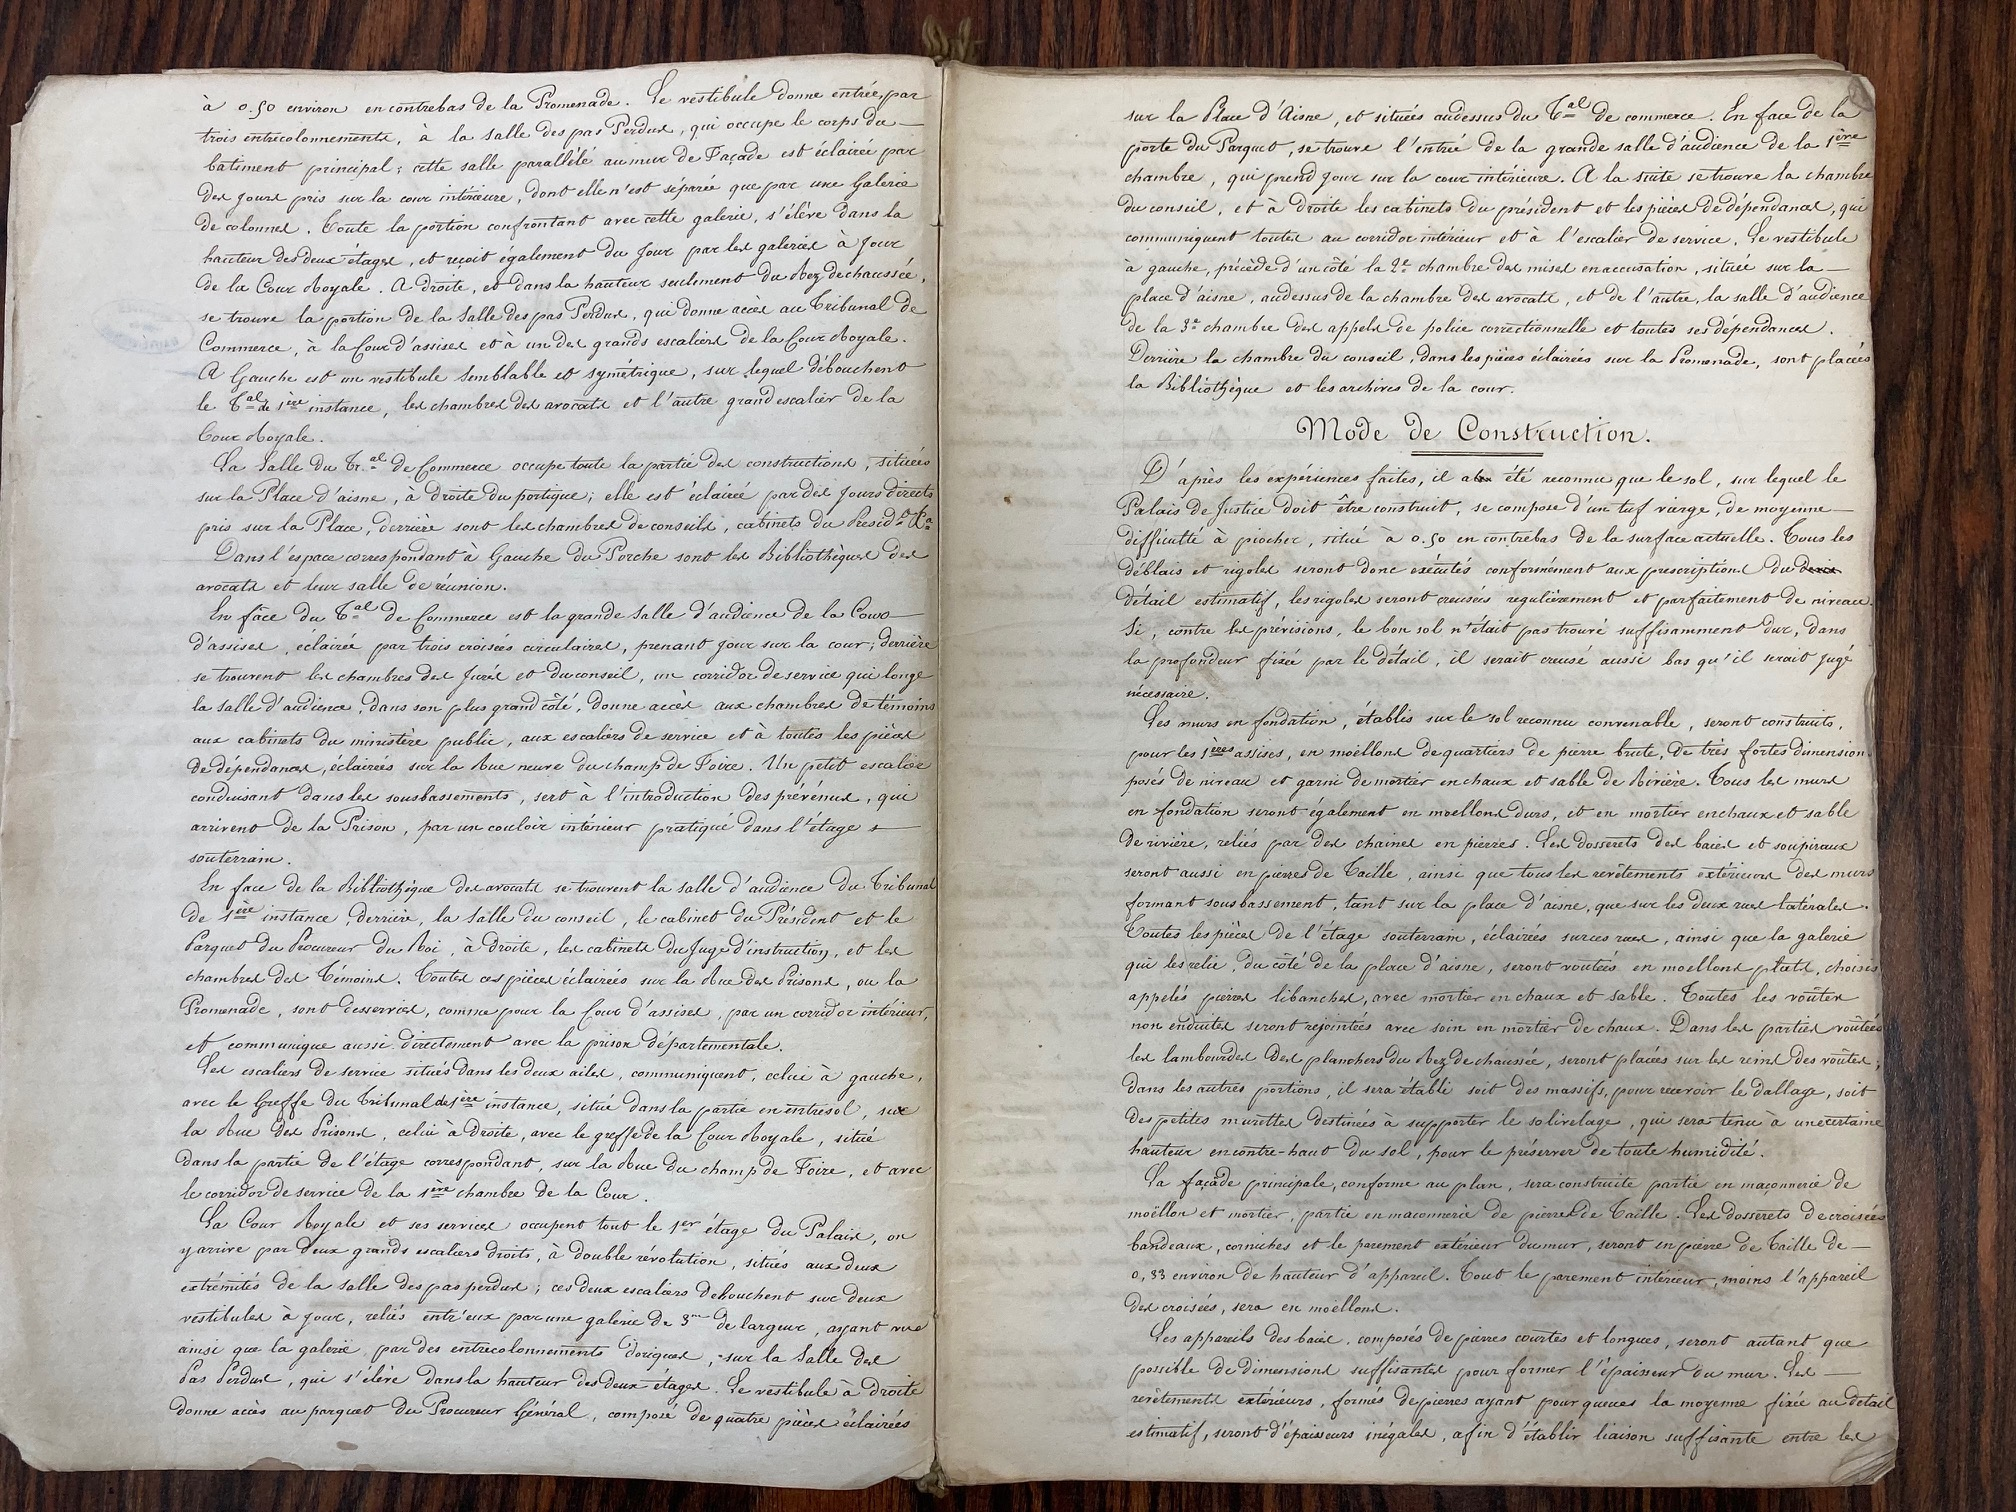 à 0.50 environ en contrebas de la Promenade. Le vestibule donne entrée, par
trois entrecolonnements, à la salle des pas Perdus, qui occupe le corps du
batiment principal; cette salle parallèle au mur de Façade est éclairée par
des jours pris sur la cour intérieure, dont elle n'est séparée que par une Galerie
de colonnes. Toute la portion confrontant avec cette galerie, s'élève dans la
hauteur des deux étages, et reçoit également du Jour par les galeries à Jour
de la Cour Royale. A droite, et dans la hauteur seulement du Rez de chaussée,
se trouve la portion de la Salle des pas Perdus, qui donne accès au Tribunal de
Commerce, à la Cour d'assises et à un des grands escaliers de la Cour Royale.
A Gauche est un vestibule semblable et symétrique, sur lequel débouchent
le Tal de 1ère instance, les chambres des avocats et l'autre grand escalier de la
Cour Royale.
La Salle du Tr.al de Commerce occupe toute la partie des constructions, situées
sur la Place d'aisne, à droite du portique; elle est éclairée par des Jours directs
pris sur la Place, derrière sont les chambres de conseils, cabinets du Présidt &a
Dans l'espace correspondant à Gauche du Porche sont les Bibliothèques des
avocats et leur salle de réunion.
En face du Tal de Commerce est la grande Salle d'audience de la Cour
d'assises, éclairée par trois croisées circulaires, prenant jour sur la cour; derrière
se trouvent les chambres des Jurés et du conseil, un corridor de service qui longe
la salle d'audience, dans son plus grand côté, donne accès aux chambres de témoins
aux cabinets du ministère public, aux escaliers de service et à toutes les pièces
de dépendances, éclairées sur la Rue neuve du champ de Foire. Un petit escalier
conduisant dans les sousbassements, sert à l'introduction des prévenus, qui
arrivent de la Prison, par un couloir intérieur pratiqué dans l'étage
souterrain.
En face de la Bibliothèque des avocats se trouvent la salle d'audience du Tribunal
de 1ère instance, derrière, la salle du conseil, le cabinet du Président et le
Parquet du Procureur du Roi, à droite, les cabinets du Juge d'instruction, et les
chambres des Témoins. Toutes ces pièces éclairées sur la Rue des Prisons, ou la
Promenade, sont desservies, comme pour la Cour d'assises, par un corridor intérieur,
et communique aussi directement avec la prison départementale.
Les escaliers de service situés dans les deux ailes, communiquent, celui à gauche,
avec le Greffe du Tribunal de 1ère instance, situé dans la partie en entresol, sur
la Rue des Prisons, celui à droite, avec le greffe de la Cour Royale, situé
dans la partie de l'étage correspondant, sur la Rue du champ de Foire, et avec
le corridor de service de la 1ère chambre de la Cour.
La Cour Royale et ses services occupent tout le 1er étage du Palais, on
y arrive par deux grands escaliers droits, à double révolution, situés aux deux
extrémités de la salle des pas perdus; ces deux escaliers débouchent sur deux
vestibules à jour, reliés entr'eux par une galerie de 3m de largeur, ayant vue
ainsi que la galerie, par des entrecolonnements doriques, sur la Salle des
Pas Perdus, qui s'élève dans la hauteur des deux étages. Le vestibule à droite
donne accès au parquet du Procureur Général, composé de quatre pièces éclairées
sur la Place d'Aisne, et situées audessus du Tal de commerce. En face de la
porte du Parquet, se trouve l'entrée de la grande salle d'audience de la 1ère
chambre, qui prend jour sur la cour intérieure. A la suite se trouve la chambre
du conseil, et à droite les cabinets du président et les pièces de dépendances, qui
communiquent toutes au corridor intérieur et à l'escalier de service. Le vestibule
à gauche, précède d'un côté la 2e chambre des mises en accusation, située sur la
place d'aisne, audessus de la chambre des avocats, et de l'autre, la salle d'audience
de la 3e chambre des appels de police correctionnelle et toutes ses dépendances.
Derrière la chambre du conseil, dans les pièces éclairées sur la Promenade, sont placées
la Bibliothèque et les archives de la cour.
Mode de Construction.
D'après les expériences faites, il a été reconnu que le sol, sur lequel le
Palais de Justice doit être construit, se compose d'un tuf vierge, de moyenne
difficulté à piocher, situé à 0.50 en contrebas de la surface actuelle. Tous les
déblais et rigoles seront donc exécutés conformément aux prescriptions du
détail estimatif, les rigoles seront creusées regulièrement et parfaitement de niveau.
Si, contre les prévisions, le bon sol n'était pas trouvé suffisamment dur, dans
la profondeur fixée par le détail, il serait creusé aussi bas qu'il serait jugé
nécessaire.
Les murs en fondation, établis sur le sol reconnu convenable, seront construits,
pour les 1ères assises, en moëllons de quartiers de pierre brute, de très fortes dimension
posés de niveau et garni de mortier en chaux et sable de Rivière. Tous les murs
en fondation seront également en moellons durs, et en mortier en chaux et sable
de rivière, reliés par des chaines en pierres. Les dosserets des baies et soupiraux
seront aussi en pierres de Taille, ainsi que tous les revêtements extérieurs des murs
formant sousbassement, tant sur la place d'aisne, que sur les deux rues latérales.
Toutes les pièces de l'étage souterrain, éclairées sur ces rues, ainsi que la galerie
qui les relie, du côté de la place d'aisne, seront voûtées en moellons plats, choisis
appelés pierres libanches, avec mortier en chaux et sable. Toutes les voûtes
non enduites seront rejointées avec soin en mortier de chaux. Dans les parties voûtées
les lambourdes des planchers du Rez de chaussée, seront placées sur les reins des voûtes;
dans les autres portions, il sera établi soit des massifs, pour recevoir le dallage, soit
des petites murettes destinées à supporter le solivelage, qui sera tenu à une certaine
hauteur en contre-haut du sol, pour le préserver de toute humidité.
La façade principale, conforme au plan, sera construite partie en maçonnerie de
moëllon et mortier, partie en maconnerie de pierres de Taille. Les dosserets de croisées
bandeaux, corniches et le parement extérieur du mur, seront en pierre de Taille de
0,33 environ de hauteur d'appareil. Tout le parement intérieur, moins l'appareil
des croisées, sera en moëllons.
Les appareils des baies, composés de pierres courtes et longues, seront autant que
possible de dimensions suffisantes pour former l'épaisseur du mur. Les
revêtements extérieurs, formés de pierres ayant pour queues la moyenne fixée au détail
estimatif, seront d'épaisseurs inégales, afin d'établir liaison suffisante entre les